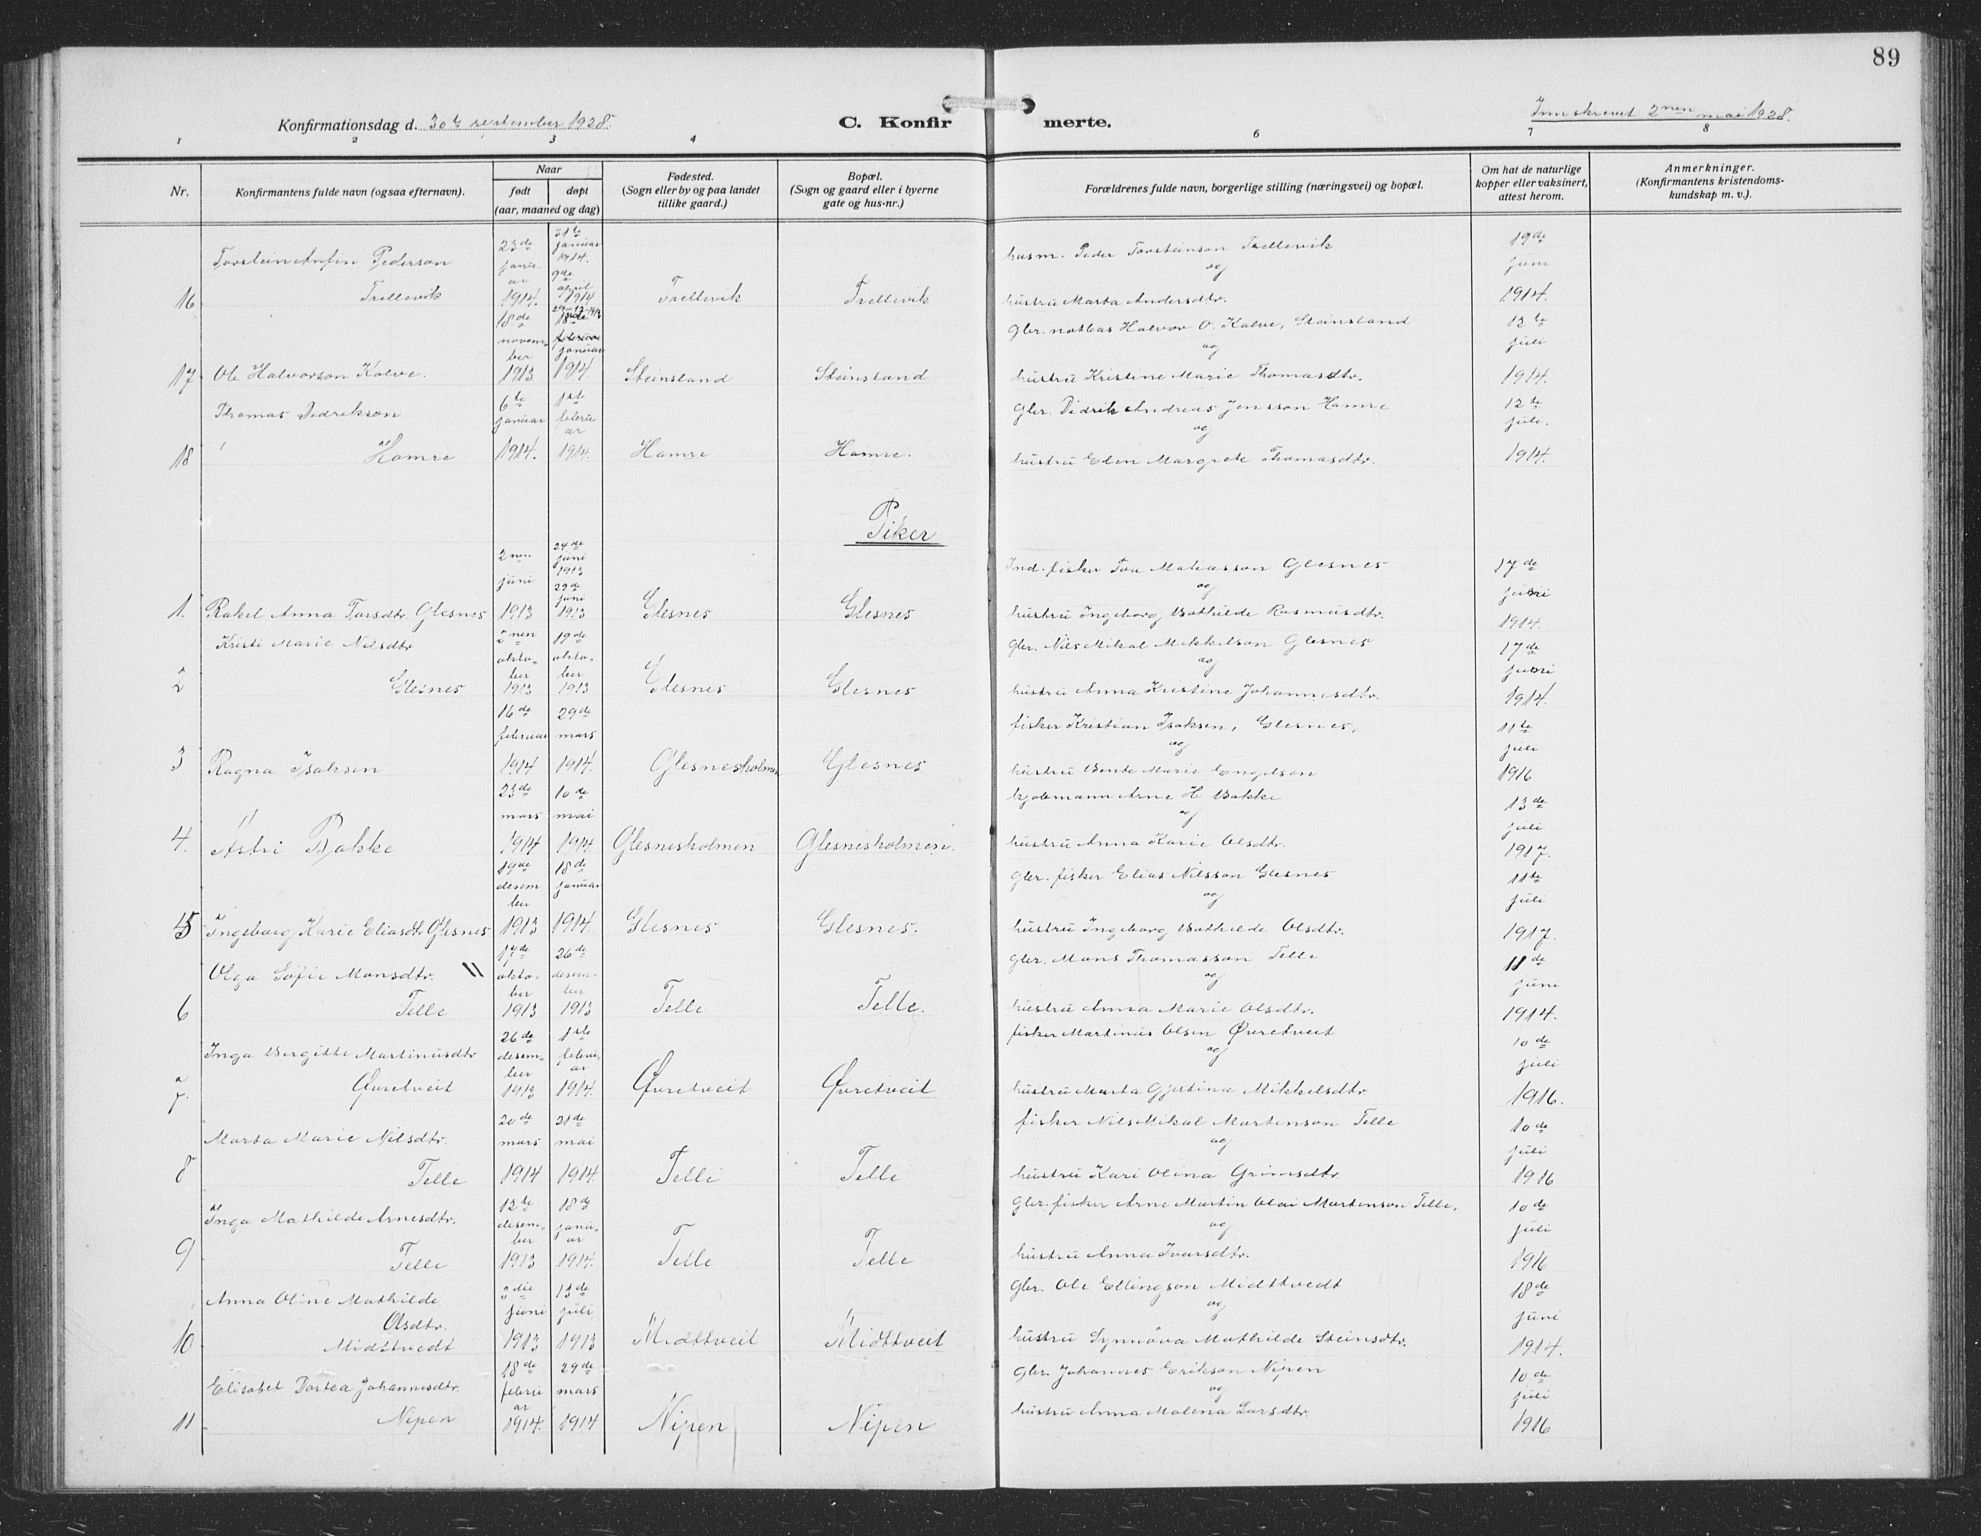 89
Konfirmationsdag d. 30te september 1928.
C. Konfirmerte.
Innskrevet 2nen mai 1928.
1 2 3 4 6 7 8
Nr.
Konfirmantens fulde navn (ogsaa efternavn).
Naar
født
døpt
(aar, maaned og dag)
Fødested.
(Sogn eller by og paa landet
tillike gaard.)
Bopæl.
(Sogn og gaard eller i byerne
gate og hus-nr.)
Forældrenes fulde navn, borgerlige stilling (næringsvei) og bopæl.
Om hat de naturlige
kopper eller vaksinert,
attest herom.
Anmerkninger.
(Konfirmantens kristendoms-
kundskap m. v.).
16 Pederson Trellevik
23de januar 1914.
31te januar 1914. 9de april 1914
Trellevik Trellevik
husm. Peder Torsteinson Trellevik
og
hustru Marta Andersdtr.
19de juni 1914.
17 Ole Halvorson Kalve.
18de november 1913
januar 1914.
Steinsland Steinsland
gbr. notbas Halvor O. Kalve, Steinsland
og
hustru Kristine Marie Thomasdtr.
12te juli 1914.
18 Thomas Didrikson Hamre
6te januar 1914.
1ste februar 1914.
Hamre Hamre.
gbr. Didrik Andreas Jensson Hamre
og
hustru Elen Margrete Thomasdtr.
12te juli. 1914.
Piker
1. Rakel Anna Torsdtr Glesnes
2nen juni 1913
24de juni 1913 29de juni 1913
Glesnes Glesnes
Ind. fisker Tore Matiasson Glesnes
og
hustru Ingeborg Bothilde Rasmusdtr.
17de juni 1914.
2 Kristi Marie Nilsdtr Glesnes
2nen oktober 1913
19de oktober 1913
Glesnes Glesnes
gbr. Nils Mikal Mikkelson Glesnes
og
hustru Anna Kristine Johannesdtr.
17de juni 1914.
3 Ragna Isaksen
16de februar 1914
29de mars 1914.
Glesnesholmen Glesnes
fisker Kristian Isaksen, Glesnes,
og
hustru Bente Marie Engelsen
11te juli 1916
4. Astri Bakke
23de mars 1914
10de mai 1914
Glesnesholmen Glesnesholmen.
kjøbmann Arne H Bakke
og
hustru Anna Karie Olsdtr.
13de juli 1917.
5 Ingeborg Karie Eliasdtr Glesnes
19de desember 1913
18de januar 1914.
Glesnes Glesnes.
gbr. fisker Elias Nilsson Glesnes
og
hustru Ingeborg Bothilde Olsdtr.
11te juli 1917.
6 Olga Sofie Monsdtr. Telle
17de oktober 1913
26de desember 1913
Telle Telle.
gbr. Mons Thomasson Telle
og
hustru Anna Marie Olsdtr.
18de juni 1914.
7. Inga Bergitte Martinusdtr Øvretveit
26de desember 1913
1ste februar 1914.
Øvretveit Øvretveit
fisker Martinus Olsen Øvretveit
og
hustru Marta Gjertina Mikkelsdtr
10de juli 1916.
8 Marta Marie Nilsdtr. Telle
20de mars 1914
21de mai 1914.
Telle Telle
fisker Nils Mikal Martenson Telle
og
hustru Kari Olina Grimsdtr.
10de juli 1916
9 Inga Mathilde Arnesdtr. Telle
12te desember 1913
18de januar 1914.
Telle Telle
gbr. fisker Arne Martin Olai Martenson Telle,
og
hustru Anna Ivarsdtr.
10de juli 1916
10 Anna Oline Mathilde Olsdtr. Midttvedt
3die juni 1913
13de juli 1913
Midttveit Midttveit
gbr. Ole Ellingson Midttvedt
og
hustru Synnöva Mathilde Steinsdtr.
18de juni 1914.
11 Elisabet Dortea Johannesdtr. Nipen
18de februar 1914.
29de mars 1914
Nipen Nipen
gbr. Johannes Erikson Nipen
og
hustru Anna Malena Larsdtr.
10de juli 1916